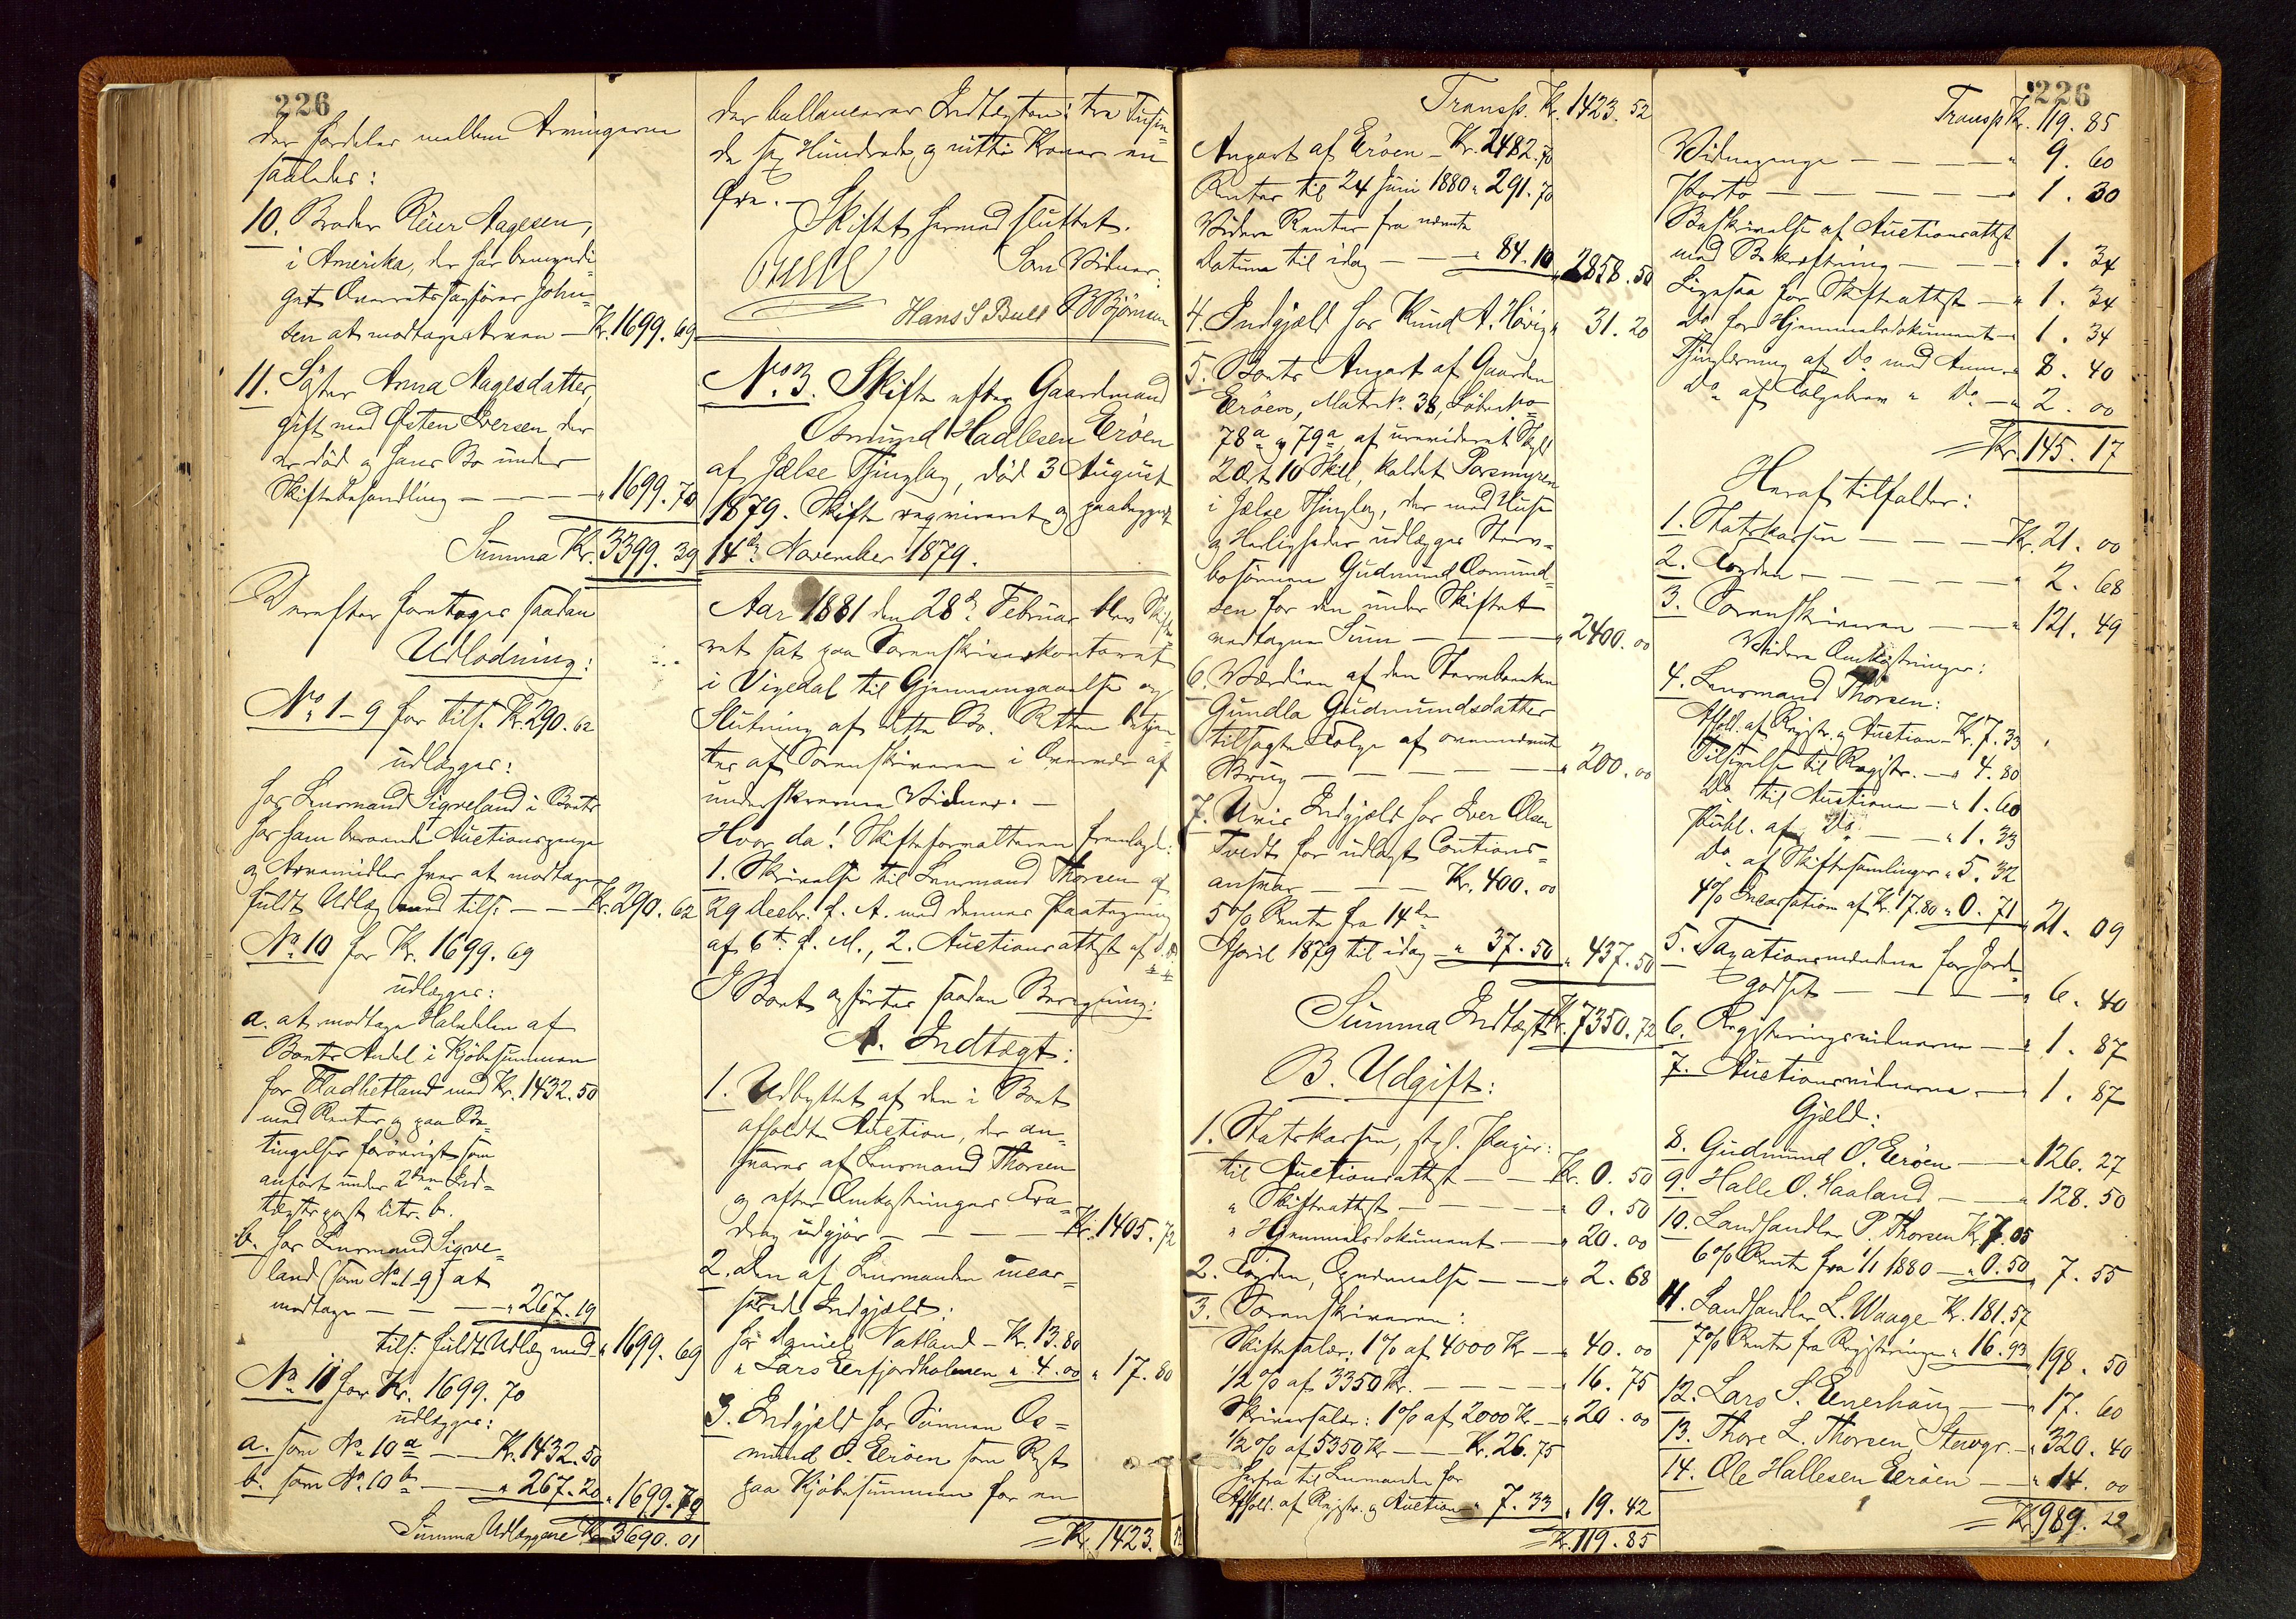 226
der fordeles mellem Arvingerne
saaledes:
10. Broder Reier Aagesen,
i Amerika, der har bemyndi-
get Overretssagfører John-
sen at modtage Arven — Kr. 1699. 69
11. Søster Anna Aagesdatter,
gift med Østen Iversen der
er død og hans Bo under
Skiftebehandling — — — " 1699. 70
Summa Kr. 3399. 39
Derefter foretoges saadan
Udlodning:
No. 1-9 for tils. Kr. 290. 62
udlægges:
hos Lensmand Sigveland i Boets
hos ham beroende Auctionspenge
og Arvemidler hver at modtage
fuldt Udlæg med tils. — — Kr. 290. 62
No. 10 for Kr. 1699. 69
udlægges:
a. at modtage Halvdelen af
Boets Andel i Kjøbesummen
for Fladhetland med Kr. 1432. 50
med Renter og paa Be-
tingelser forøvrigt som
anført under 2den Ind-
tægtspost litr. b.
b. hos Lensmand Sigve-
land (som No. 1-9) at
modtage — — — " 267. 19
tils. fuldt Udlæg med " 1699. 69
No. 11 for Kr. 1699. 70
udlægges:
a. som No. 10 a — Kr. 1432. 50
b. som No. 10 b — " 267. 20 " 1699. 70
Summa Udlæggene Kr. 3690. 01
der ballancerer Indtægten: tre Tusin-
de sex Hundrede og nitti Kroner en
Øre. —
Skiftet hermed sluttet.
Som Vidner:
Hans S Bull B Bjørnsen
No. 3. Skifte efter Gaardmand
Osmund Hadlesen Erøen
af Jælse Thinglag, død 3 August
1879. Skifte reqvireret og paabegyndt
14de November 1879.
Aar 1881 den 28de Februar blev Skifte-
ret sat paa Sorenskriverkontoret
i Vigedal til Gjennemgaaelse og
Slutning af dette Bo. Retten betjen-
tes af Sorenskriveren i Overvær af
underskrevne Vidner. —
Hvor da! Skifteforvalteren fremlagde:
1. Skrivelse til Lensmand Thorsen af
29 Decbr. f. A. med dennes Paategning
af 6te d. M., 2. Auctionsattest af
I Boet opførtes saadan Beregning:
A. Indtægt:
1. Udbyttet af den i Boet
afholdte Auction, der an-
svares af Lensmand Thorsen
og efter Omkostningers Fra-
drag udgjør — — — — Kr. 1405. 72
2. Den af Lensmanden incas-
serede Indgjæld:
hos Daniel Natland — Kr. 13. 80
" Lars Erfjordholmen " 4. 00 " 17. 80
3. Indgjæld hos Sønnen Os-
mund O. Erøen som Rest
paa Kjøbesummen for en
Kr. 1423. 52
Transp. Kr. 1423. 52
Anpart af Erøen — Kr. 2482. 70
Renter til 24 Juni 1880 " 291. 70
Videre Renter fra nævnte
Datum til idag — — " 84. 10 " 2858. 50
4. Indgjæld hos Knud A. Høvig " 31. 20
5. Boets Anpart af Gaarden
Erøen, Matr. No. 38, Løbe No.
78 a og 79 a, af urevideret Skyld
2 Ort 10 Skil, kaldet Porsmyren
i Jælse Thinglag, der med Huse
og Herligheder udlægges Sterv-
bosønnen Gudmund Osmund-
sen for den under Skiftet
vedtagne Sum — — — " 2400. 00
6. Værdien af den Stervbøenken
Gundla Gudmundsdatter
tilsagte Folge af ovennævnte
Brug — — — — — " 200. 00
7. Uvis Indgjæld hos Iver Olsen
Tvedt for udlagt Cautions-
ansvar — — — Kr. 400. 00
5% Rente fra 14de
April 1879 til idag " 37. 50 " 437. 50
Summa Indtægt Kr. 7350. 72
B. Udgift:
1. Statskassen, stpl. Papir:
til Auctionsattest — — Kr. 0. 50
" Skifteattest — — — — " 0. 50
" Hjemmelsdokument — — " 20. 00
2. Fogden, Gyndmelse — — " 2. 68
3. Sorenskriveren:
Skiftesalær: 1% af 4000 Kr — " 40. 00
1/2% af 3350 Kr. — — — " 16. 75
Skriversalær: 1% af 2000 Kr — " 20. 00
1/2% af 5350 Kr — — Kr. 26. 75
herfra til Lensmanden for
Afhold. af Registr. og Auction " 7. 33 " 19. 42
Kr. 119. 85
226
Transp. Kr. 119. 85
Vidnepenge — — — — " 9. 60
Porto — — — — — " 1. 30
Beskrivelse af Auctionsattest
med Bekræftning — — — " 1. 34
Ligesaa for Skifteattest — " 1. 34
Do. for Hjemmelsdokument — " 1. 34
Thinglæsning af Do. med Anm. " 8. 40
Do. af Folgebrev " Do. — " 2. 00
Kr. 145. 17
Heraf tilfalder:
1. Statskassen — — — Kr. 21. 00
2. Fogden — — — — — " 2. 68
3. Sorenskriveren — — " 121. 49
Videre Omkostninger:
4. Lensmand Thorsen:
Afhold. af Registr. og Auction — Kr. 7. 33
Tilsigelse til Registr. — " 4. 80
Do. til Auctionen — " 1. 60
Publ. af Do. — — " 1. 33
Do. af Skiftesamlinger " 5. 32
4% Incassation af Kr. 17.80 " 0. 71 " 21. 09
5. Taxationsmændene for Jorde-
godset — — — — " 6. 40
6. Registreringsvidnerne — " 1. 87
7. Auctionsvidnerne — " 1. 87
Gjæld:
8. Gudmund O. Erøen — " 126. 27
9. Halle O. Haaland — — " 128. 50
10. Landhandler P. Thorsen Kr. 7. 05
6% Rente fra 1/1 1880 — " 0. 50 " 7. 55
11. Landhandler L. Waage Kr. 181. 57
7% Rente fra Registreringen " 16. 93 " 198. 50
12. Lars S. Enerhaug — — " 17. 60
13. Thore L. Thorsen, — " 320. 40
14. Ole Hallesen Erøen — " 14. 00
Kr. 989. 22